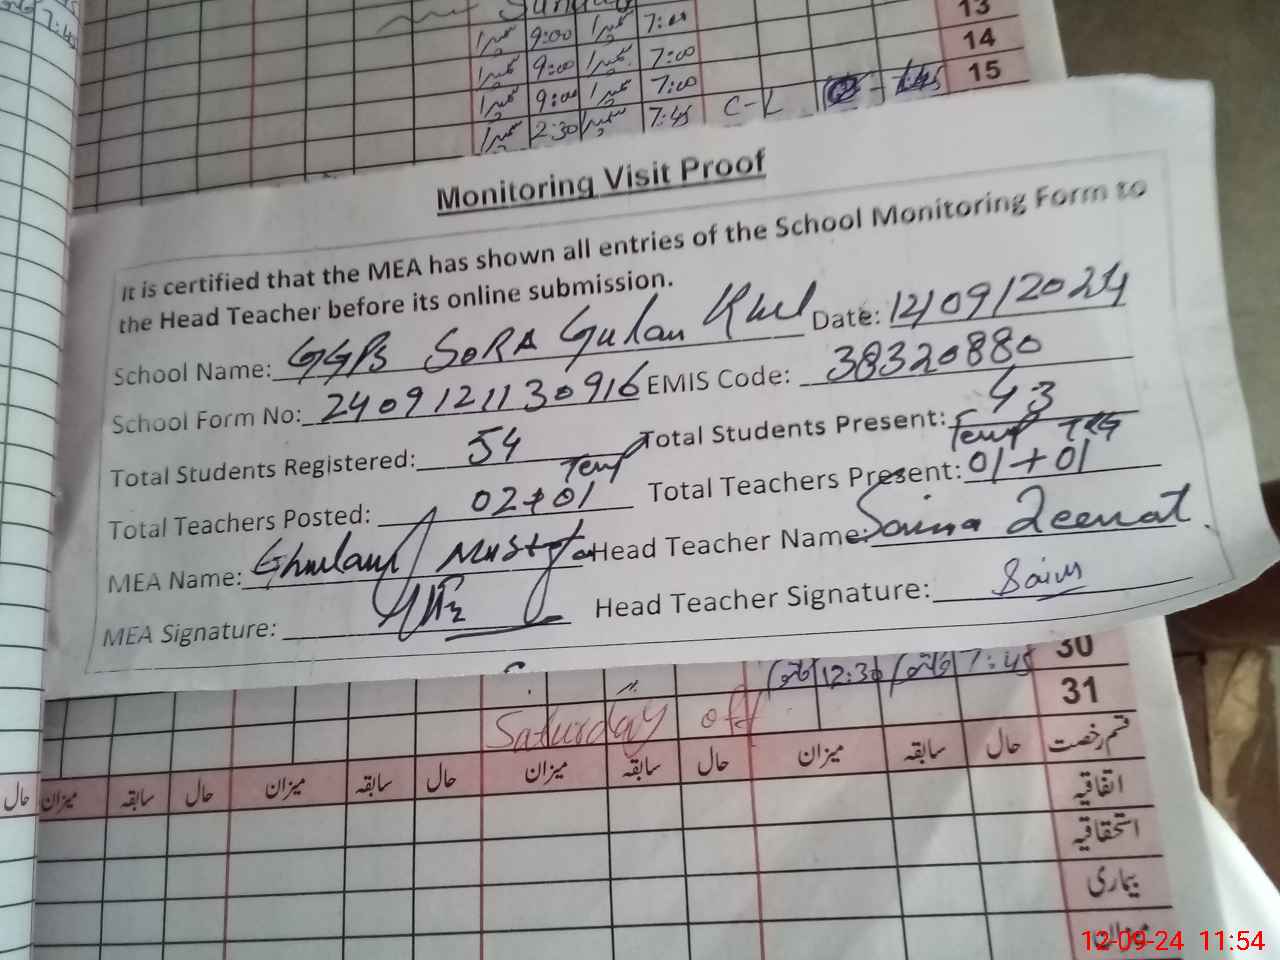 Sunday
9:00 7:00
9:00 7:00
9:00 7:00
2:30 7:45 C-L
13
14
15
Monitoring Visit Proof
It is certified that the MEA has shown all entries of the School Monitoring Form to
the Head Teacher before its online submission.
School Name: GGPS SORA Gulan Khel Date: 12/09/2024
School Form No: 2409121130916 EMIS Code: 38320880
Total Students Registered: 54 Total Students Present: 43
Temp Temp
Total Teachers Posted: 02+01 Total Teachers Present: 01+01
MEA Name: Ghulam Mustafa Head Teacher Name: Saima Zeenat
MEA Signature: Head Teacher Signature: Saima
12:30 7:45 30
Saturday off 31
حال میزان سابقہ حال میزان سابقہ حال میزان سابقہ حال میزان سابقہ حال قسم رخصت
اتفاقیہ
استحقاقیہ
بیماری
میزان
12-09-24 11:54